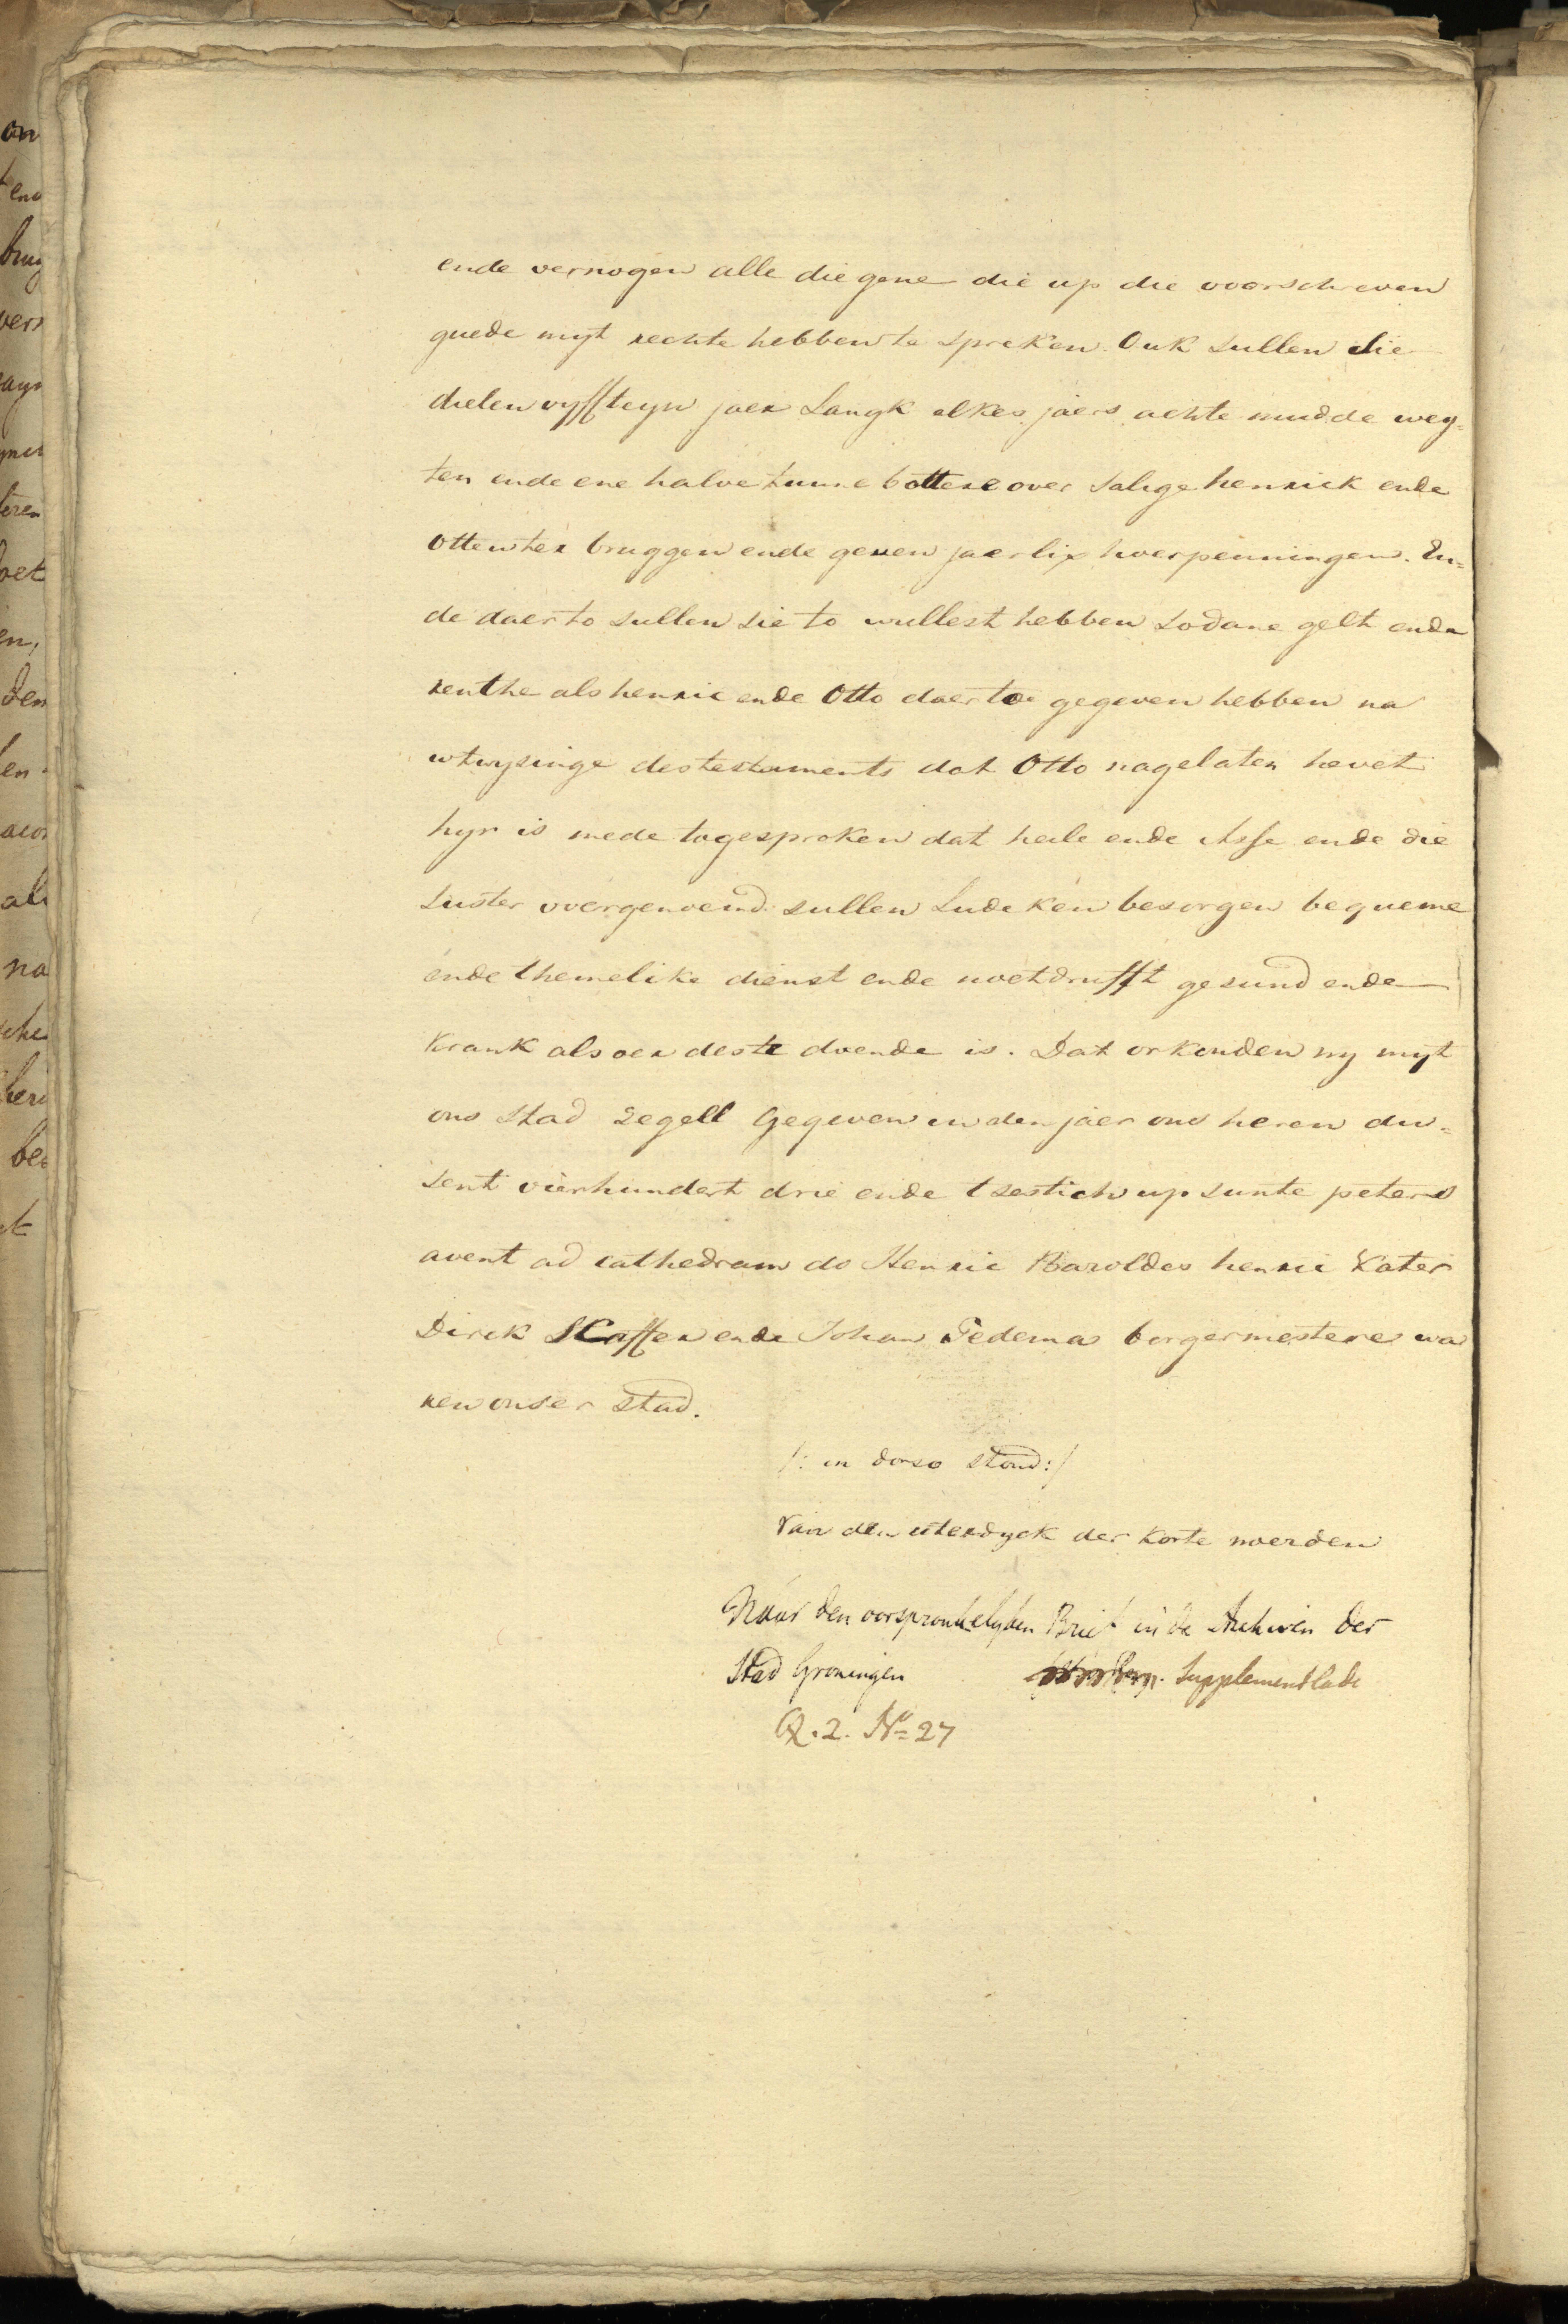 ende vernogen alle die gene die up die voorschreven
guede myt rechte hebben te spreken. Ouk sullen sie
dielen vyffteyn jaer Langk elkes jaers achte mudde wey=
ten ende ene halve tunne bottere over salige henrick ende
Otten ter bruggen ende geven jaerlix hoerpenningen. En=
de daerto sullen sie to wullest hebben sodane gelt ende
renthe als henric ende Otto daer toe gegeven hebben na
wtwysinge des testaments dat Otto nagelaten hevet
hyr is mede togesproken dat heile ende Asse ende die
suster voergenoemd sullen Ludeken besorgen bequeme
ende themelike dienst ende noetdrufft gesund ende
krank als oer deste doende is. Dat orkonden wy myt
ons Stad Segell Gegeven in den jaer ons heren du=
sent vierhundert drie ende tsestich up sunte peters
avent ad cathedram do Henric Baroldes henric Kater
Dirck SCaffer ende Johan Tedema borgermestere wa
ren onser Stad.
/: in dorso stond :/
Van den uterdyck der Korte woerden
Naar den oorspronkelyken Brief in de Archiven der
Stad Groningen Supplementlade
Q. 2. No 27